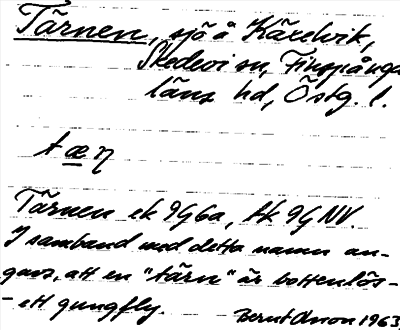 Tärnen, sjö å Käxelvik,
Skedevi sn, Finspånga
läns hd, Östg. l.
tæη
Tärnen ek 9G6a, tk 9G NV.
I samband med detta namn an-
gavs, att en "tärn" är bottenlös-
- ett gungfly. Bernt Olson 1963